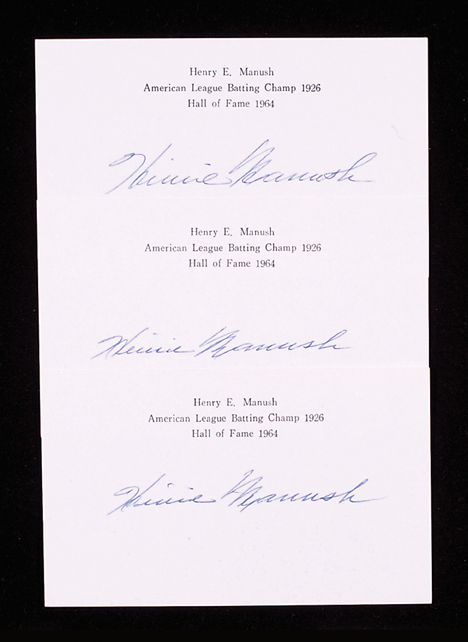 Henry E. Manush
American League Batting Champ 1926
Hall of Fame 1964
Heinie Manush
Henry E. Manush
American League Batting Champ 1926
Hall of Fame 1964
Heinie Manush
Henry E. Manush
American League Batting Champ 1926
Hall of Fame 1964
Heinie Manush